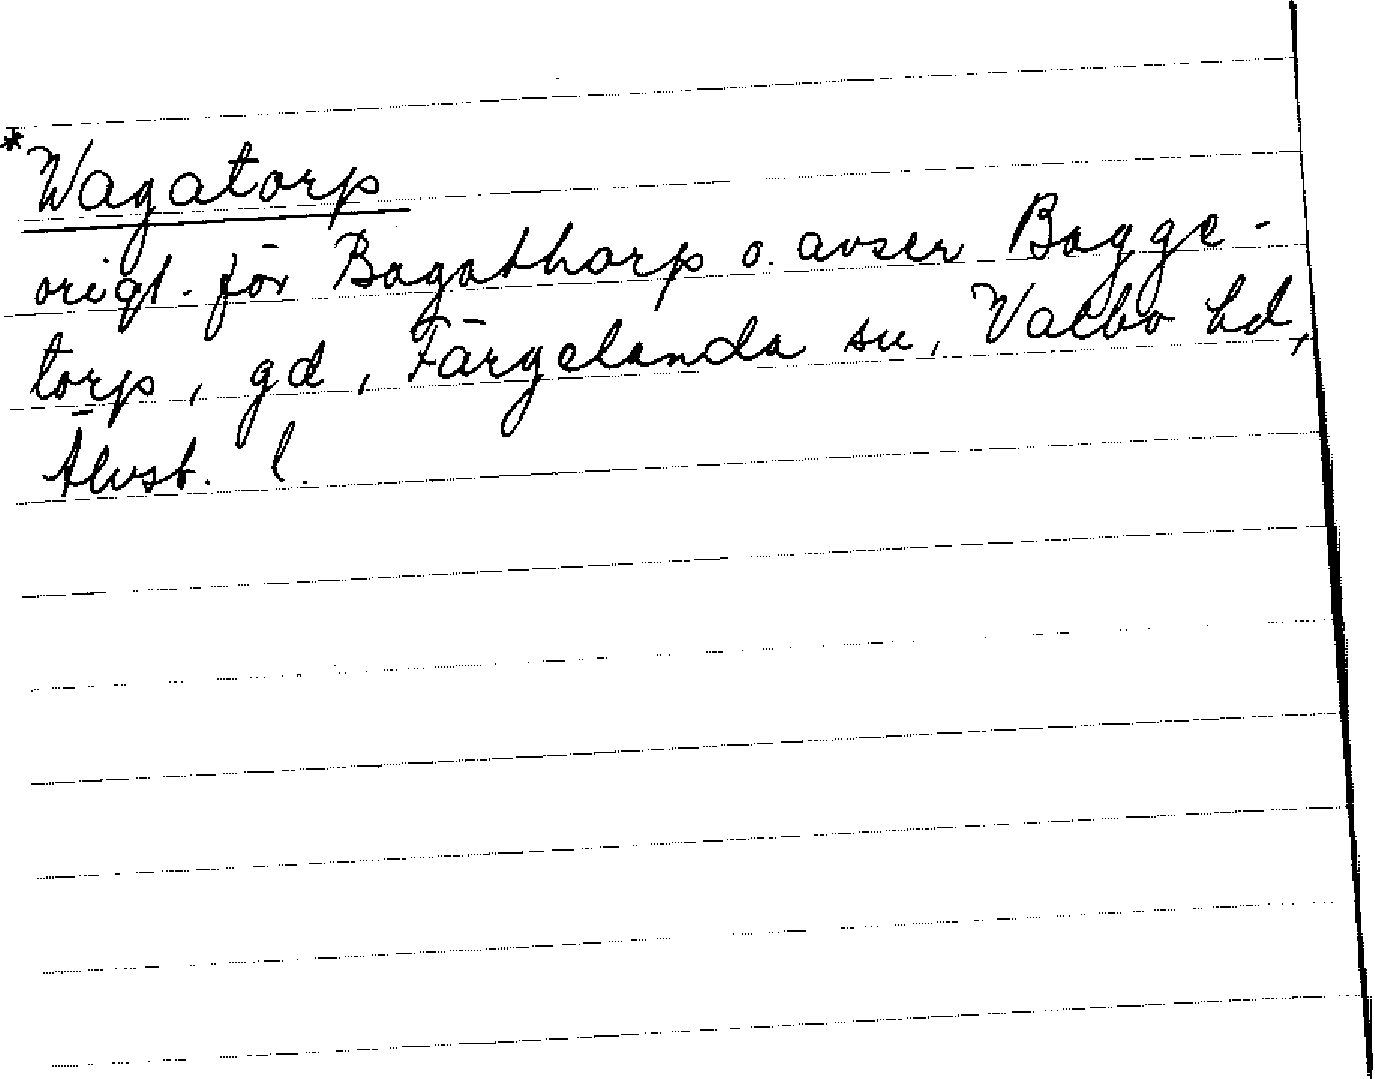 *Wagatorp
oreigl. för Bagathorp o. avser Bagge-
torp, gd, Färgelanda sn, Valbo hd,
Älvsb. l.